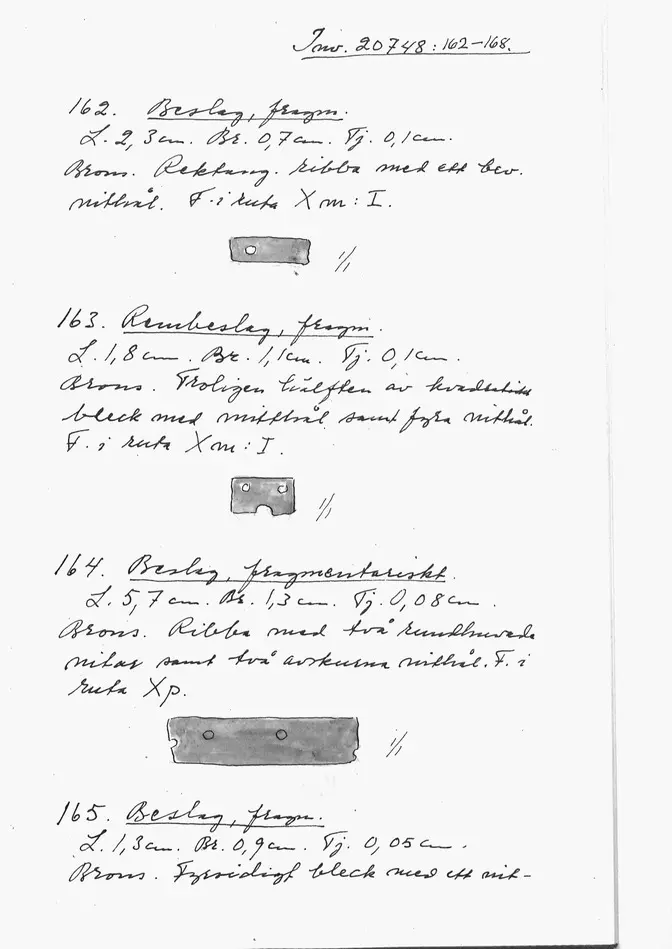 Inv. 20748:162-168.
162. Beslag, fragm.
L. 2,3cm. Br. 0,7cm. Tj. 0,1cm.
Brons. Rektang. ribba med ett bev.
nithål. F. i ruta X m: I.
1/1
163. Rembeslag, fragm.
L. 1,8cm. Br. 1,1cm. Tj. 0,1cm.
Brons. Troligen hälften av kvadratiskt
bleck med mitthål samt fyra nithål.
F. i ruta X m: I.
1/1
164. Beslag, fragmentariskt.
L. 5,7cm. Br. 1,3cm. Tj. 0,08cm.
Brons. Ribba med två rundhuvade
nitar samt två avskurna nithål. F. i
ruta Xp.
1/1
165. Beslag, fragm.
L. 1,3cm. Br. 0,9cm. Tj. 0,05cm.
Brons. Fyrsidigt bleck med ett nit-